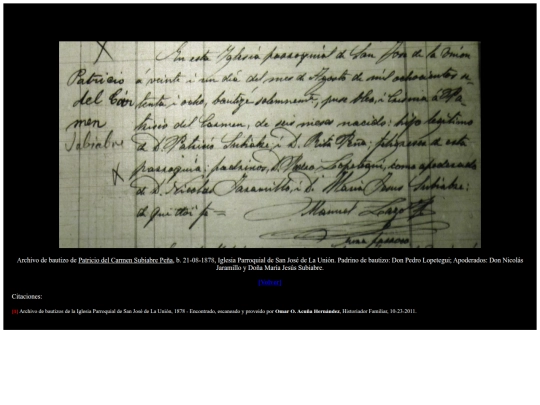 En esta Iglesia parroquial de San José de la Unión
Patricio
á veinte i un dia del mes de Agosto de mil ochocientos se-
del Cár
tenta i ocho, bauticé solemnente, puse óleo i crisma á Pa-
men
tricio del Carmen, de seis meses nacido: hijo lejítimo
Subiabre
de D. Patricio Subiabre i D. Rita Peña;
de esta
parroquia; padrinos, D. Pedro Lopetegui, como apoderado
de D. Nicolas Jaramillo, i D. Maria Jesus Subiabre:
de que doi fe =
Manuel
Archivo de bautizo de Patricio del Carmen Subiabre Peña, b. 21-08-1878, Iglesia Parroquial de San José de La Unión. Padrino de bautizo: Don Pedro Lopetegui; Apoderados: Don Nicolás
Jaramillo y Doña María Jesús Subiabre.
(Volver)
Citaciones:
Archivo de bautizos de la Iglesia Parroquial de San José de La Unión, 1878 - Encontrado, escaneado y proveido por Omar O. Acuña Hernández, Historiador Familiar, 10-23-2011.